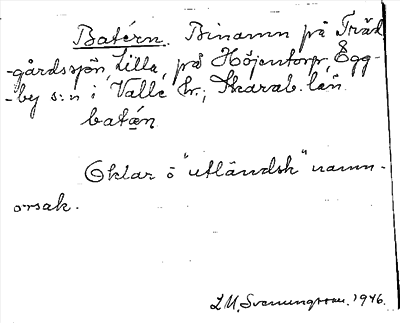 Batérn. Binamn på Träd-
-gårdssjön, Lilla, på Höjentorp, Egg-
-by s:n i Valle hr.; Skarab. län.
batán
Oklar o "utländsk" namn-
orsak.
L M. Svenungsson. 1946.